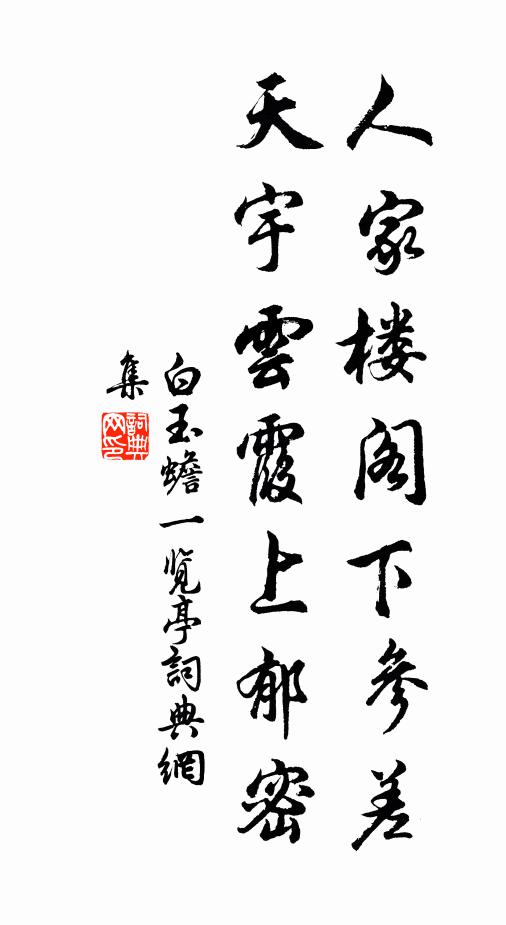 人家楼阁下参差
天宇雲霞上郁密
白玉蟾一览亭詞典網
集
詞典网印